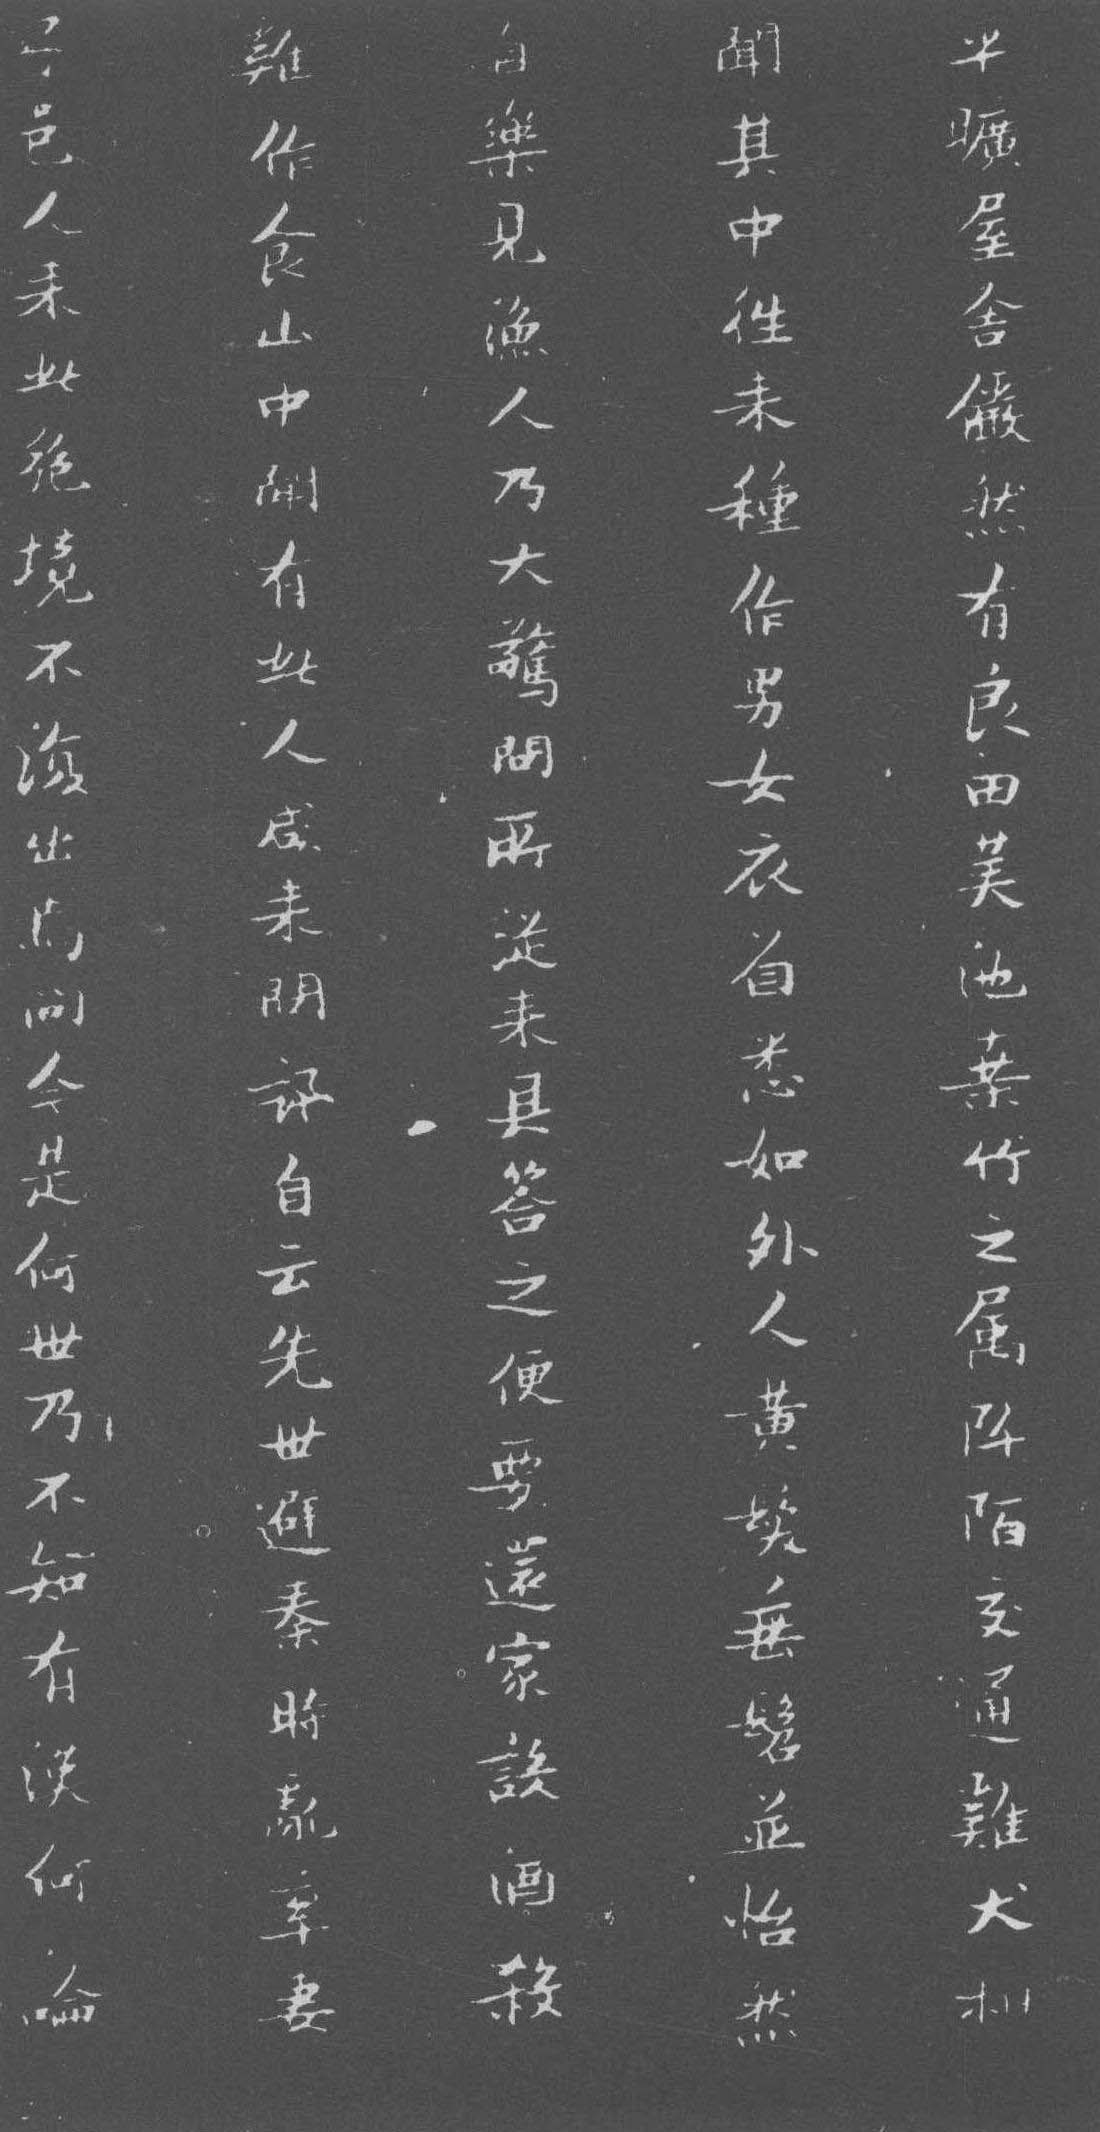 平曠屋舍儼然有良田美池桑竹之属阡陌交通雞犬相
聞其中往来種作男女衣着悉如外人黃髮垂髫並怡然
自樂見漁人乃大驚問所從来具答之便要還家設酒殺
雞作食山中聞有此人咸来問訊自云先世避秦時亂率妻
子邑人来此絕境不復出焉問今是何世乃不知有漢何論